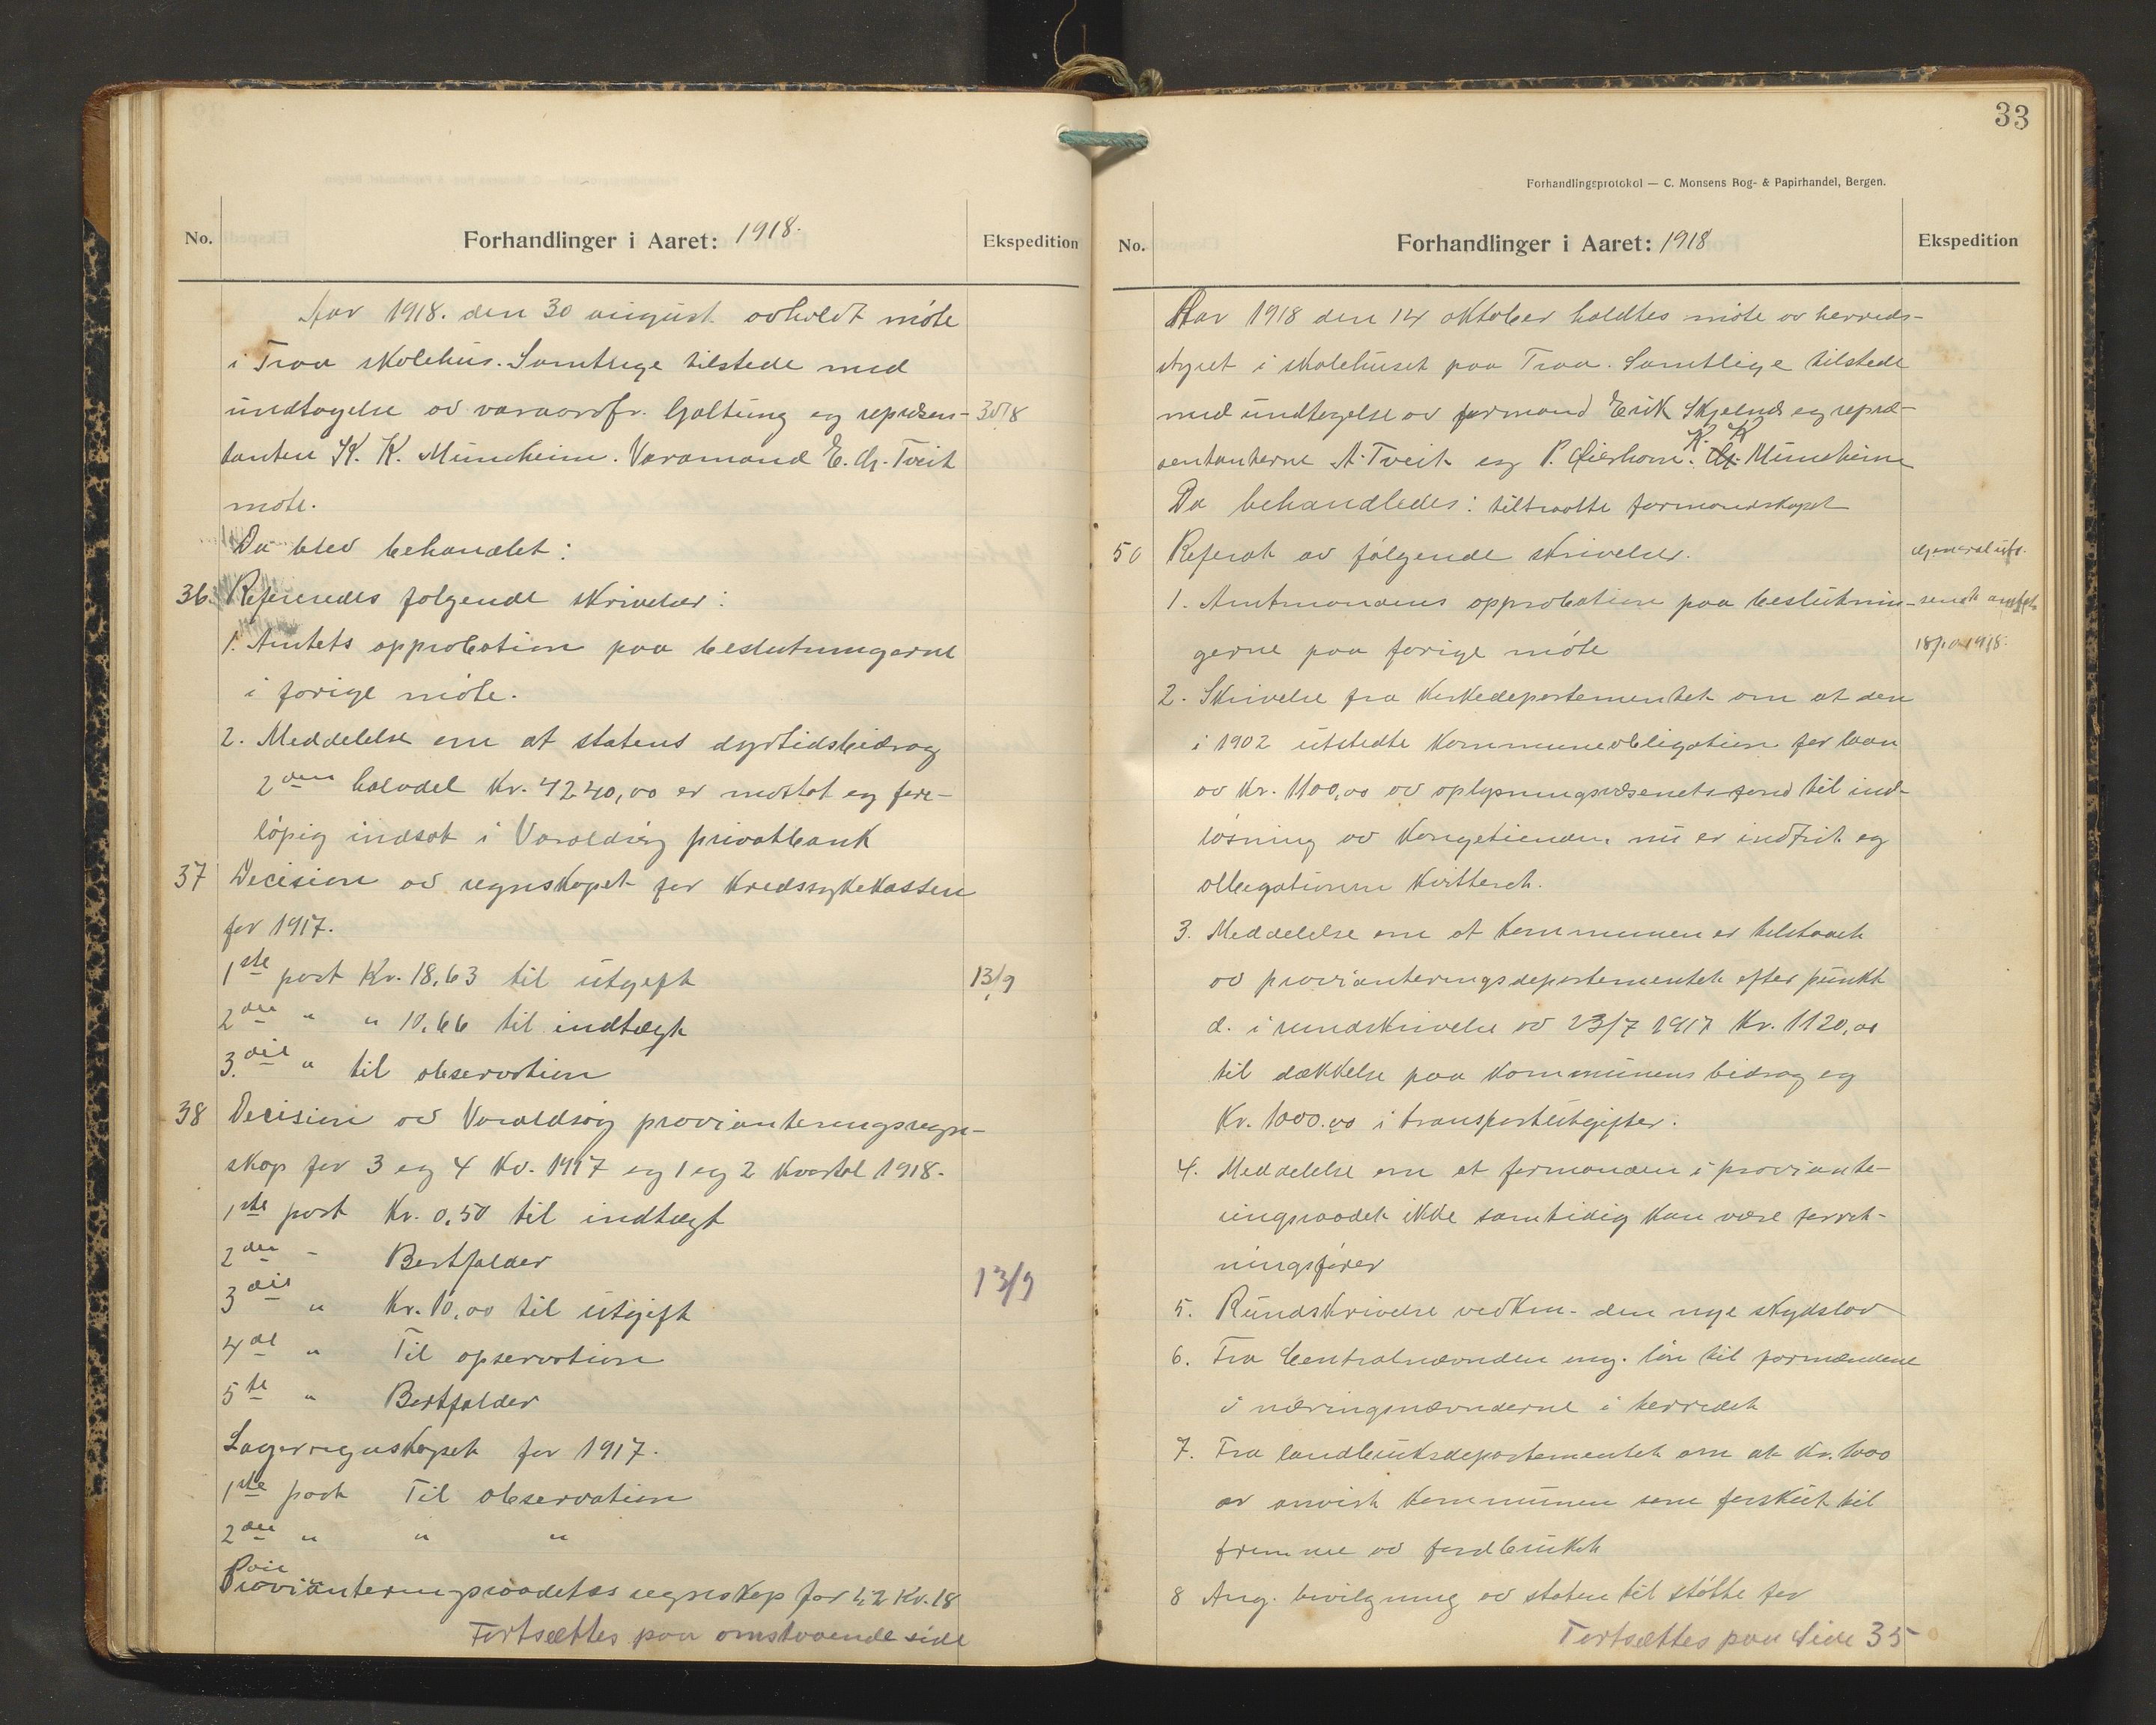 No. Forhandlinger i Aaret: 1918. Ekspedition
Aar 1918. den 30 august avholdt møte
i Traa skolehus. Samtlige tilstede med
undtagelse av varaordfr. Galtung og repræsen- 30/8
tanten K. K. Mundheim. Varamand E. Chr. Tveit
møtte.
Da blev behandlet:
36. Refereredes følgende skrivelser:
1. Amtets approbation paa beslutningerne
i forige møte.
2. Meddelelse om at statens dyrtidsbidrag
2den halvdel Kr. 4240,00 er mottat og fore-
løpig indsat i Varaldsøy privatbank
37 Decision av regnskapet for Kredssykekassen
for 1917.
1ste post Kr. 18,63 til utgift 13/9
2den " " 10,66 til indtægt
3die " til observation
38 Decision av Varaldsøy provianteringsregn-
skap for 3 og 4 Kv. 1917 og 1 og 2 Kvartal 1918.
1ste post Kr. 0,50 til indtægt
2den - Bortfalder
3die " Kr. 10,00 til utgift 13/9
4de " Til opservation
5te " Bortfalder
Lagerregnskapet for 1917.
1ste post Til observation
2den " " "
Provianteringsraadets regnskap for 1, 2 Kv. 18
Fortsættes paa omstaaende side
33
Forhandlingsprotokol — C. Monsens Bog- & Papirhandel, Bergen.
No. Forhandlinger i Aaret: 1918 Ekspedition
Aar 1918 den 14 oktober holdtes møte av herreds-
styret i skolehuset paa Traa. Samtlige tilstede
med undtagelse av formand Erik Skjelnes og repræ-
sentanterne A. Tveit og P. Øierhavn. K. K. Mundheim
Da behandledes: tiltraatte formandskapet
50 Referat av følgende skrivelser. Generaluts.
1. Amtmandens approbation paa beslutnin- sendt amtet
gerne paa forige møte 18/10 1918.
2. Skrivelse fra Kirkedepartementet om at den
i 1902 utstedte Kommuneobligation for laan
av Kr. 1100,00 av oplysningsvæsenets fond til ind-
løsning av Kongetienden nu er indfrit og
obligationen kvittert.
3. Meddelelse om at kommunen er tilstaaet
av provianteringsdepartementet efter punkt
d. i rundskrivelse av 23/7 1917 Kr. 1120,00
til dækkelse paa Kommunens bidrag og
Kr. 1000.00 i transportutgifter.
4. Meddelelse om at formanden i proviante-
ringsraadet ikke samtidig kan være forret-
ningsfører
5. Rundskrivelse vedkm. den nye skydslov
6. Fra Centralnævnden ang. løn til formændene
i næringsnævnderne i herredet
7. Fra landbruksdepartementet om at Kr. 1000
er anvist Kommunen som forskut til
fremme av jordbruket
8 Ang. bevilgning av staten til støtte for
Fortsættes paa Side 35